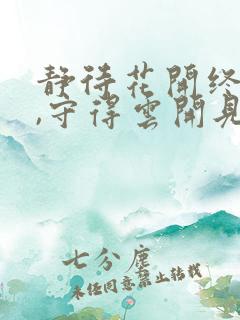 静待花開终
,守得雲開見
七分塵
未经同意禁止转载